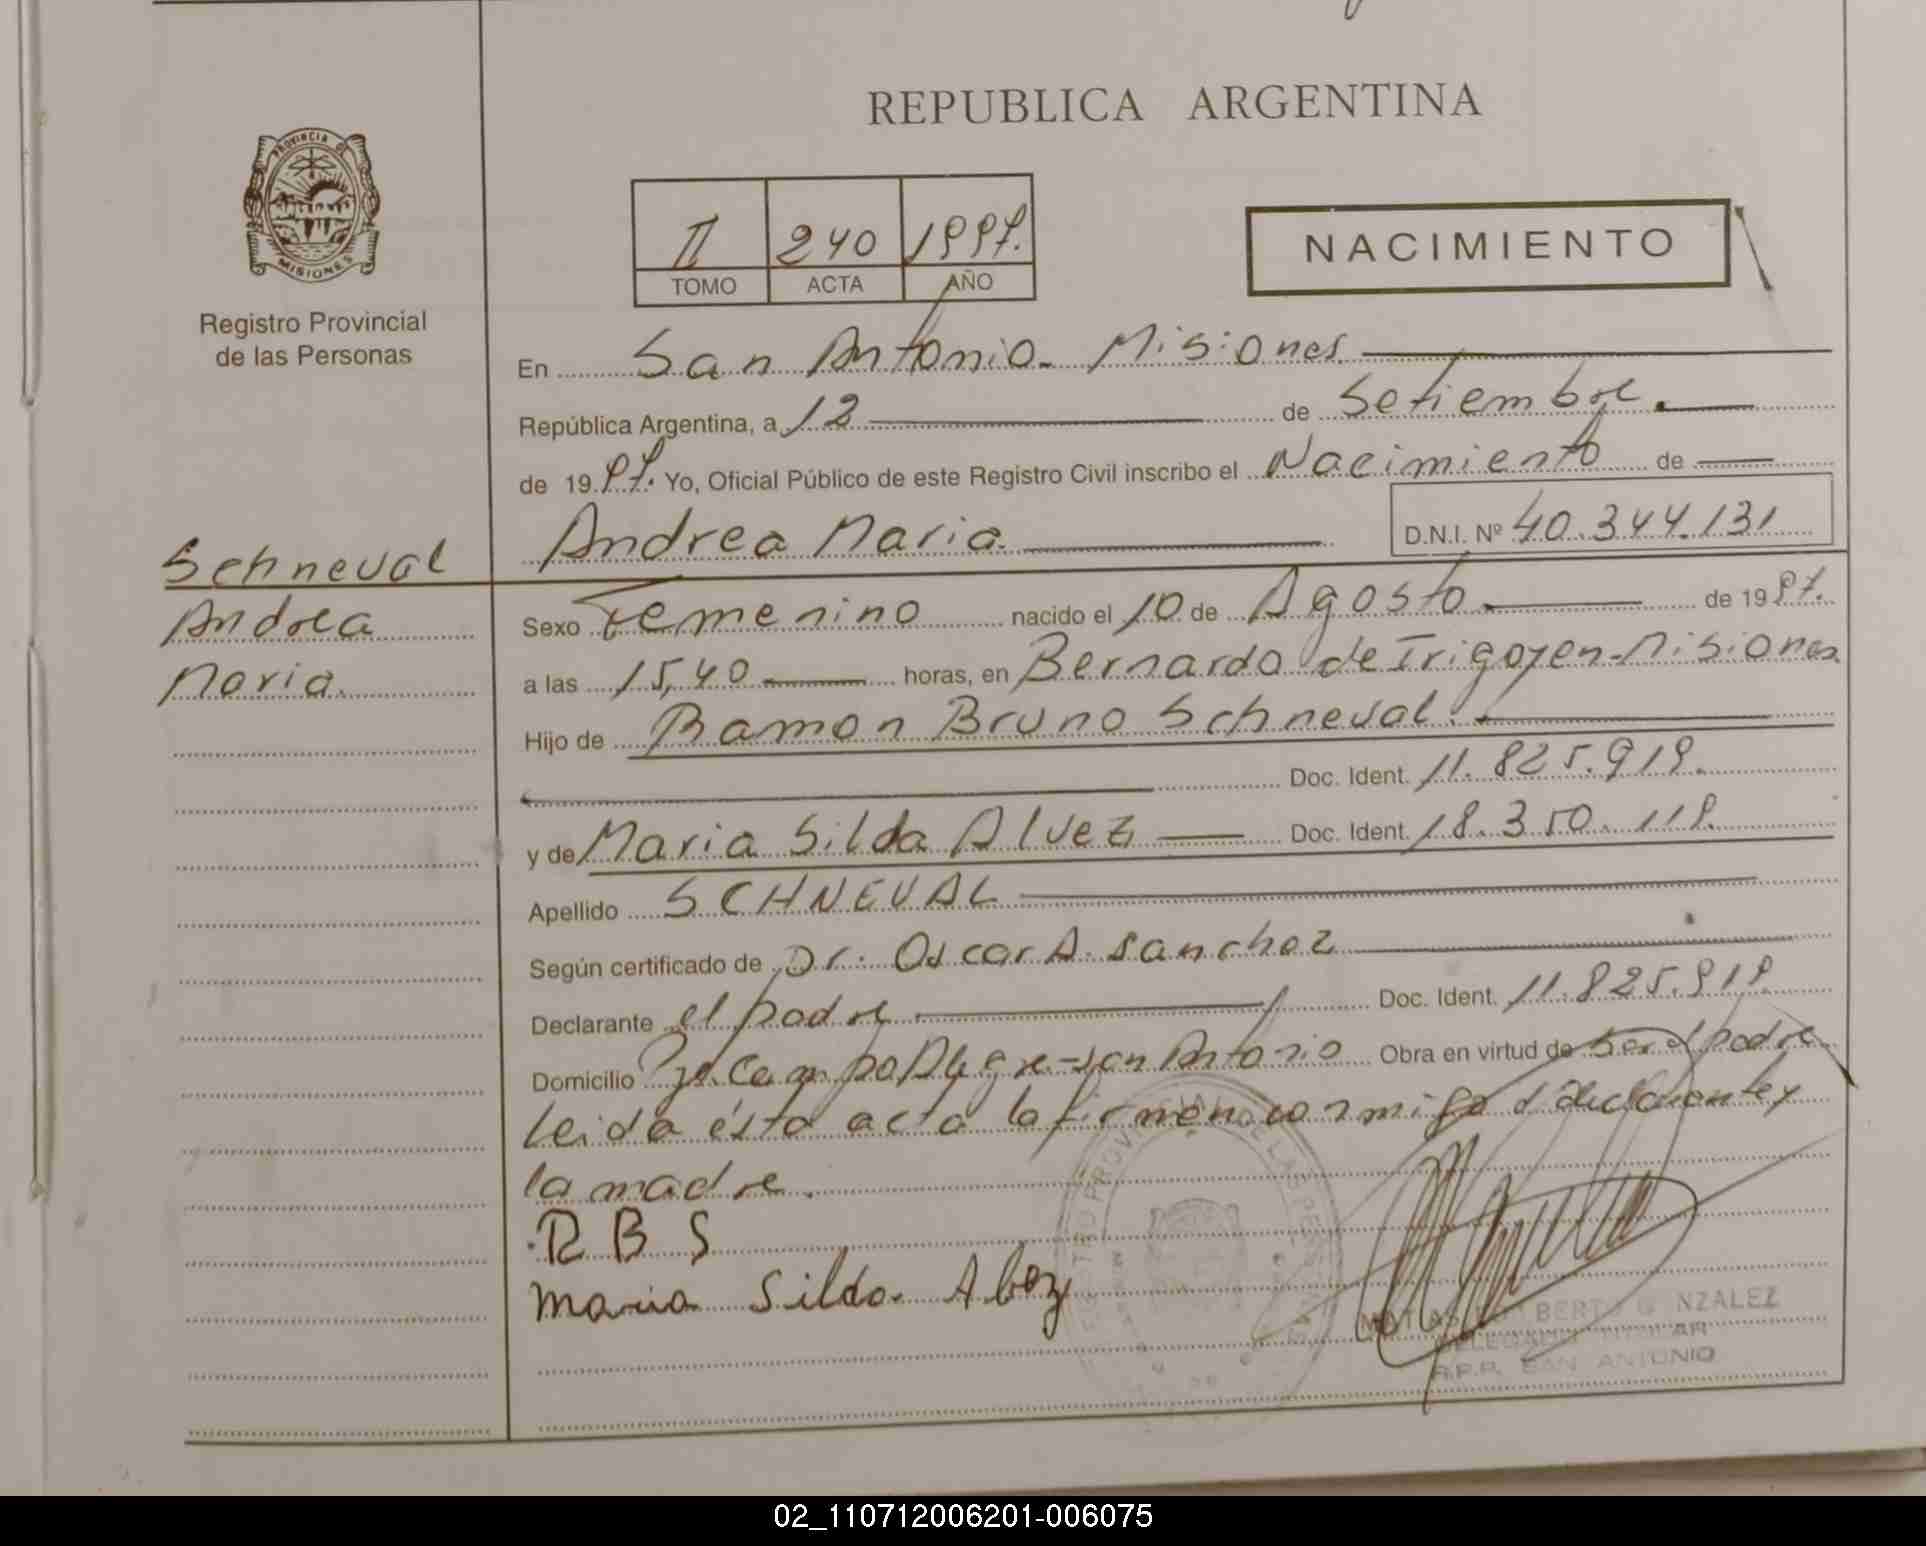 REPUBLICA ARGENTINA
PROVINCIA DE
MISIONES
Registro Provincial
de las Personas
II 240 1997.
TOMO ACTA AÑO
NACIMIENTO
En San Antonio. Misiones
República Argentina, a 12 de Setiembre.
de 1997. Yo, Oficial Público de este Registro Civil inscribo el Nacimiento de
Andrea Maria. D.N.I. Nº 40.344.131
Schneval
Andrea
Maria.
Sexo Femenino nacido el 10 de Agosto de 1997.
a las 15,40 horas, en Bernardo de Irigoyen-Misiones
Hijo de Ramon Bruno Schneval.
Doc. Ident. 11.825.919.
y de Maria Silda Alvez Doc. Ident. 18.350.119.
Apellido SCHNEVAL
Según certificado de Dr. Oscar A. Sanchez
Declarante el padre Doc. Ident. 11.825.919
Domicilio Campo Alegre-San Antonio Obra en virtud de Ser el padre
Leida ésta acta la firman conmigo el declarante y
la madre.
R B S
Maria Silda Albez
MATIAS BERTO GONZALEZ
DELEGADO TITULAR
R.P.P. SAN ANTONIO
02_110712006201-006075